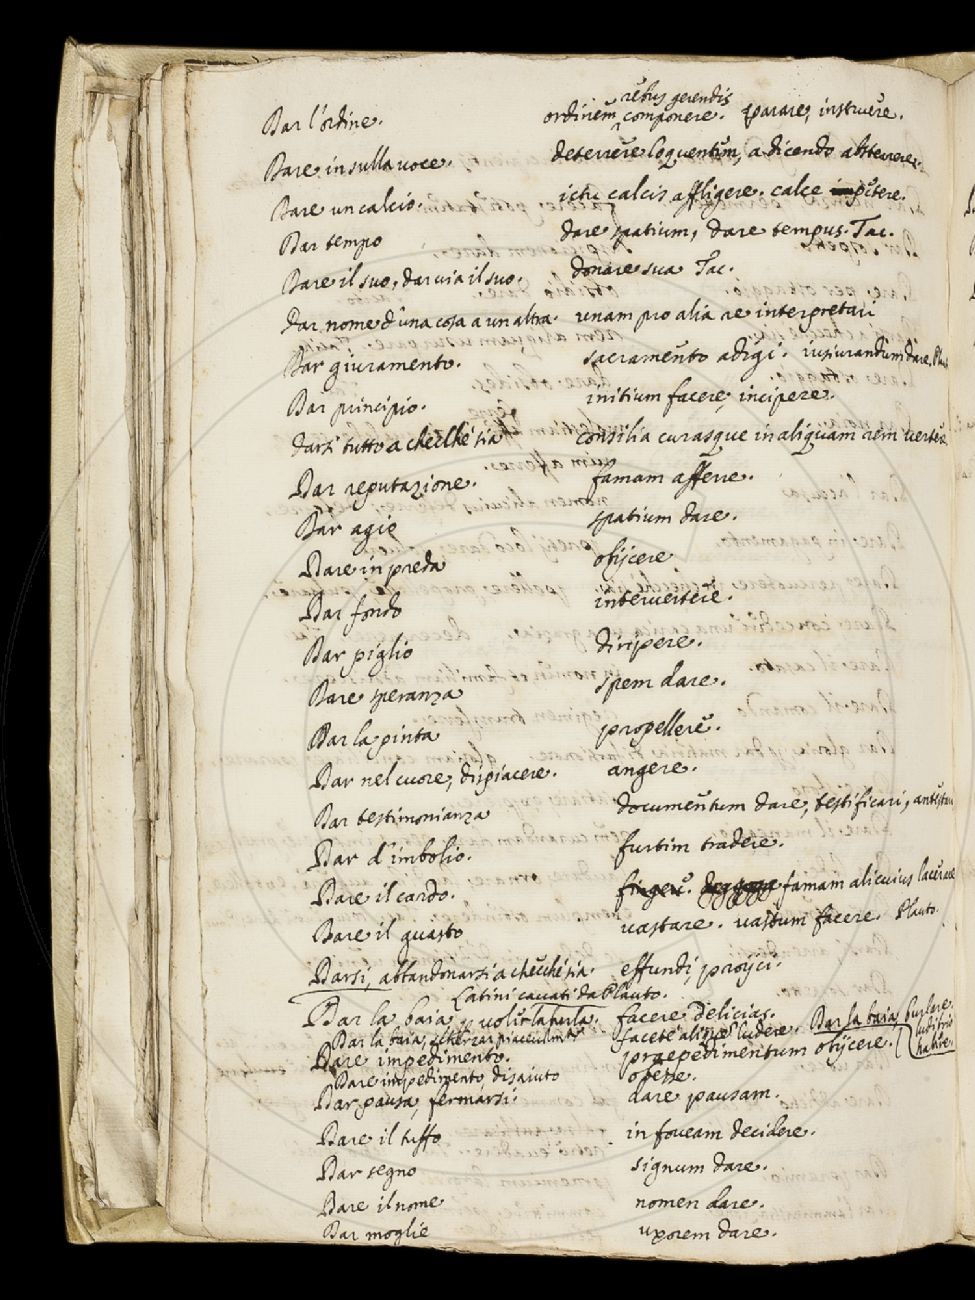 rebus gerendis
Dar l'ordine. ordinem componere. parare, instruere.
Dare in sulla voce. deterrere loquentem, a dicendo absterrere.
Dare un calcio. ictu calcis affligere. calce petere.
Dar tempo dare spatium, dare tempus. Tac.
Dare il suo, dar via il suo. donare sua Tac.
Dar nome d'una cosa a un altra. unam pro alia re interpretari
Dar giuramento. sacramento adigi. iusiurandum dare. Plau
Dar principio. initium facere, incipere.
darsi tutto a checche sia consilia curasque in aliquam rem vertere
Dar reputazione. famam afferre.
Dar agio spatium dare.
Dare in preda obijcere
Dar fondo intervertere.
Dar piglio diripere.
Dare speranza spem dare.
Dar la pinta propellere.
Dar nel cuore, dispiacere. angere.
Dar testimonianza documentum dare, testificari, antestari
Dar d'imbolio. furtim tradere.
Dare il cardo. famam alicuius lacerare
Dare il guasto vastare. vastum facere. Plauto.
Darsi, abbandonarsi a checche sia. effundi, proijci.
Latini cavati da Plauto.
Dar la baia facere delicias.
Dar la baia, scherzar facete ludere. Dar la baia, burlare
ludibrio
habere.
Dare impedimento. praepedimentum obijcere.
Dare impedimento, disaiuto obesse.
Dar pausa, fermarsi dare pausam.
Dare il tuffo in foveam decidere.
Dar segno signum dare.
Dare il nome nomen dare.
Dar moglie uxorem dare.